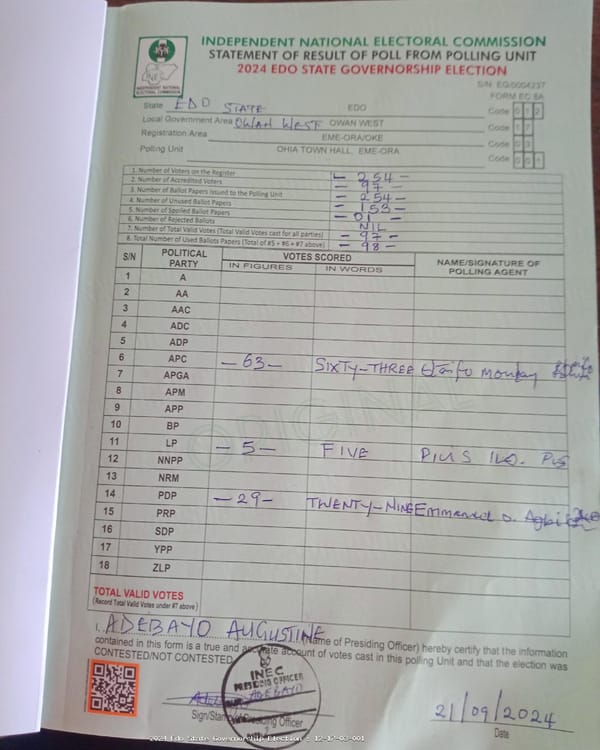 INDEPENDENT NATIONAL ELECTORAL COMMISSION
STATEMENT OF RESULT OF POLL FROM POLLING UNIT
2024 EDO STATE GOVERNORSHIP ELECTION
INDEPENDENT NATIONAL ELECTORAL COMMISSION
S/N EG/0004237
FORM EC 8A
State EDO STATE EDO Code 0 1 2
Local Government Area OWAN WEST OWAN WEST Code 1 7
Registration Area EME-ORA/OKE Code 0 3
Polling Unit OHIA TOWN HALL, EME-ORA Code 0 0 1
1. Number of Voters on the Register - 254 -
2. Number of Accredited Voters - 97 -
3. Number of Ballot Papers Issued to the Polling Unit - 254 -
4. Number of Unused Ballot Papers - 153 -
5. Number of Spoiled Ballot Papers - 01 -
6. Number of Rejected Ballots NIL
7. Number of Total Valid Votes (Total Valid Votes cast for all parties) - 97 -
8. Total Number of Used Ballots Papers (Total of #5 + #6 + #7 above) - 98 -
S/N POLITICAL PARTY VOTES SCORED NAME/SIGNATURE OF POLLING AGENT
IN FIGURES IN WORDS
1 A
2 AA
3 AAC
4 ADC
5 ADP
6 APC - 63 - SIXTY-THREE Monday
7 APGA
8 APM
9 APP
10 BP
11 LP - 5 - FIVE PIUS
12 NNPP
13 NRM
14 PDP - 29 - TWENTY-NINE Emmanuel O.
15 PRP
16 SDP
17 YPP
18 ZLP
ORIGINAL
TOTAL VALID VOTES
(Record Total Valid Votes under #7 above)
I, ADEBAYO AUGUSTINE (Name of Presiding Officer) hereby certify that the information
contained in this form is a true and accurate account of votes cast in this polling Unit and that the election was
CONTESTED/NOT CONTESTED
INEC
PRESIDING OFFICER
ADEBAYO
Sign/Stamp of Presiding Officer
21/09/2024
Date
2024 Edo State Governorship Election - 12-17-03-001